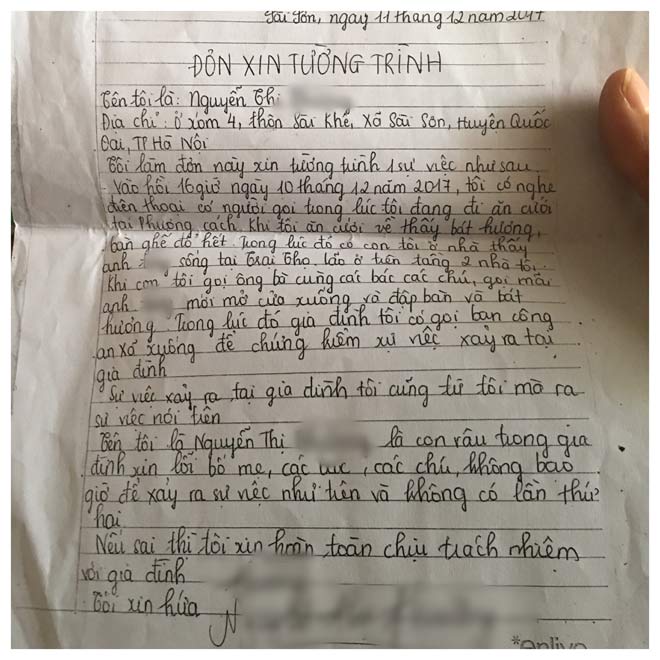 Sài Sơn, ngày 11 tháng 12 năm 2017
ĐƠN XIN TƯỜNG TRÌNH
Tên tôi là: Nguyễn Thị
Địa chỉ: ở xóm 4, thôn Sài Khê, Xã Sài Sơn, Huyện Quốc
Oai, TP Hà Nội
Tôi làm đơn này xin tường trình 1 sự việc như sau
- Vào hồi 16 giờ ngày 10 tháng 12 năm 2017, tôi có nghe
điện thoại có người gọi trong lúc tôi đang đi ăn cưới
tại Phượng cách. Khi tôi ăn cưới về thấy bát hương,
bàn ghế đổ hết. Trong lúc đó có con tôi ở nhà thấy
anh sống tại Trại Thọ Lão ở trên tầng 2 nhà tôi.
Khi con tôi gọi ông bà cùng các bác các chú, gọi mãi
anh mới mở cửa xuống và đập bàn và bát
hương. Trong lúc đó gia đình tôi có gọi ban công
an xã xuống để chứng kiếm sự việc xảy ra tại
gia đình
Sự việc xảy ra tại gia đình tôi cũng từ tôi mà ra
sự việc nói trên
Tên tôi là Nguyễn Thị là con râu trong gia
đình xin lỗi bố mẹ, các , các chú, không bao
giờ để xảy ra sự việc như trên và không có lần thứ
hai
Nếu sai thì tôi xin hoàn toàn chịu trách nhiệm
với gia đình
Tôi xin hứa
N